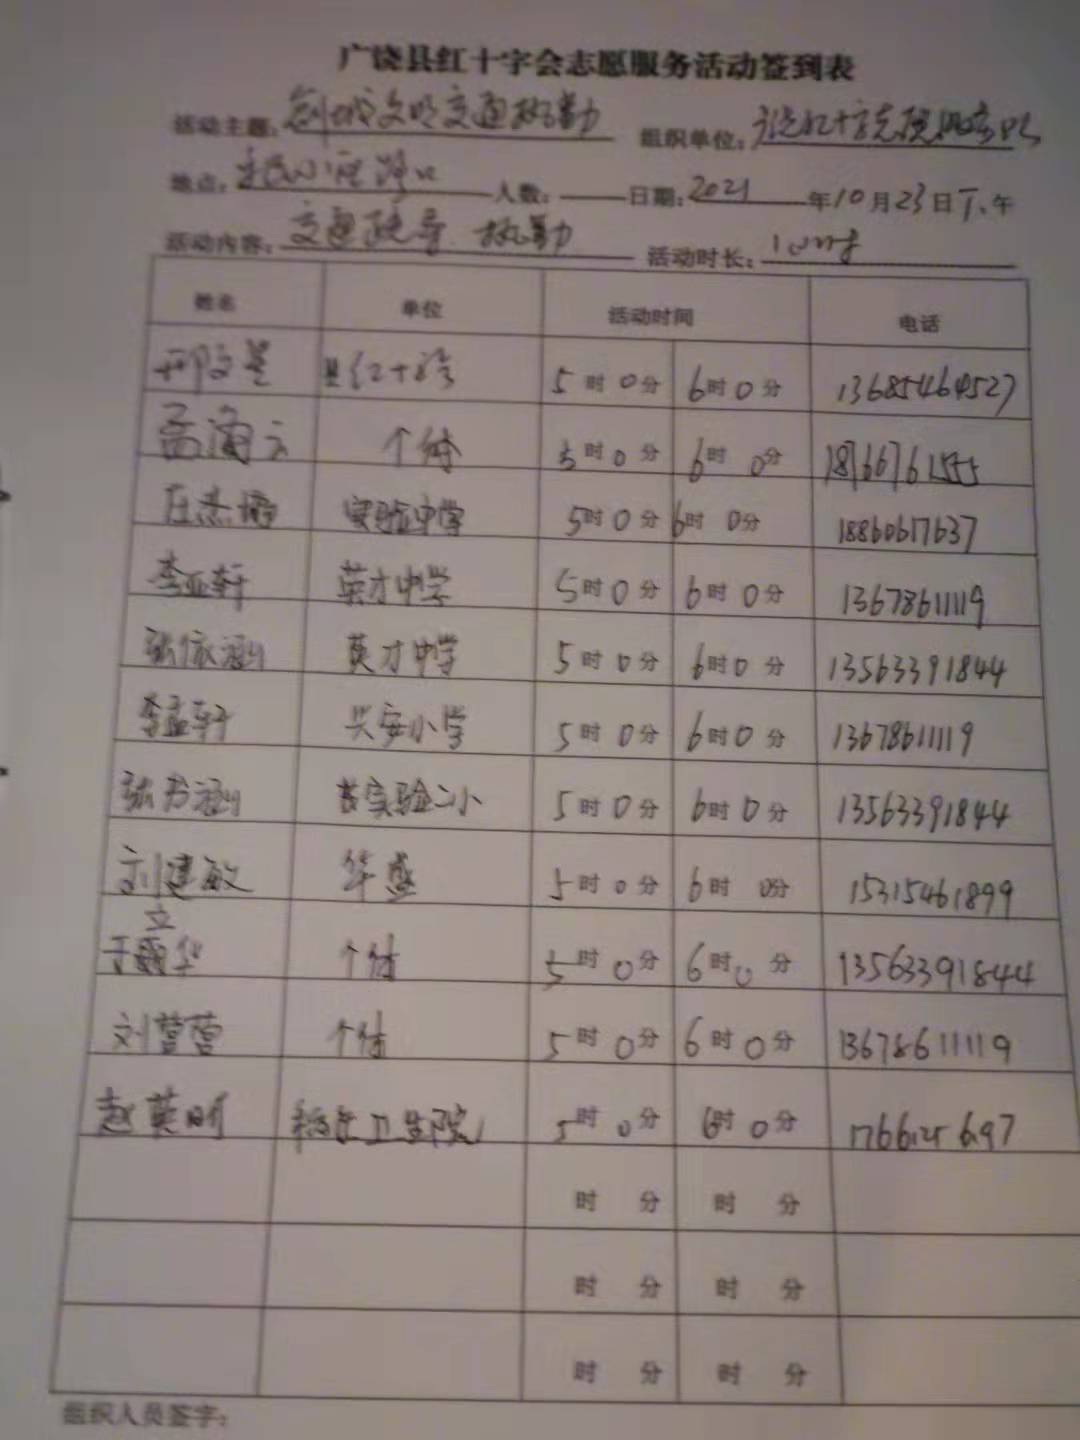 广饶县红十字会志愿服务活动签到表
活动主题: 创城文明交通执勤 组织单位:
地点: 路口 人数: 日期: 2021 年10月23日下午
活动内容: 交通疏导 执勤 活动时长: 1小时
姓名 单位 活动时间 电话
县红十字会 5时0分 6时0分 13685464527
孟海 个体 5时0分 6时0分 18766761555
庄杰 实验中学 5时0分 6时0分 18860617637
李亚轩 英才中学 5时0分 6时0分 13678611119
张依涵 英才中学 5时0分 6时0分 13563391844
李孟轩 兴安小学 5时0分 6时0分 13678611119
张书涵 实验二小 5时0分 6时0分 13563391844
刘建敏 华盛 5时0分 6时0分 15315461899
于立华 个体 5时0分 6时0分 13563391844
刘营营 个体 5时0分 6时0分 13678611119
赵英明 稻庄卫生院 5时0分 6时0分
时 分 时 分
时 分 时 分
时 分 时 分
组织人员签字: